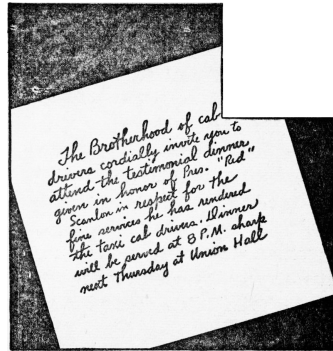 The Brotherhood of cab
drivers cordially invite you to
attend the testimonial dinner
given in honor of Pres. "Red"
Scanlon in respect for the
fine services he has rendered
the taxi cab drivers. Dinner
will be served at 8 P.M. sharp
next Thursday at Union Hall